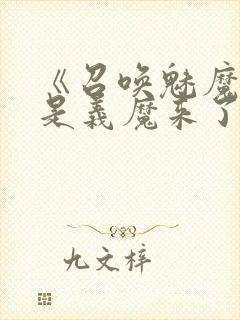 《召唤魅魔
是义魔来了
九文梓